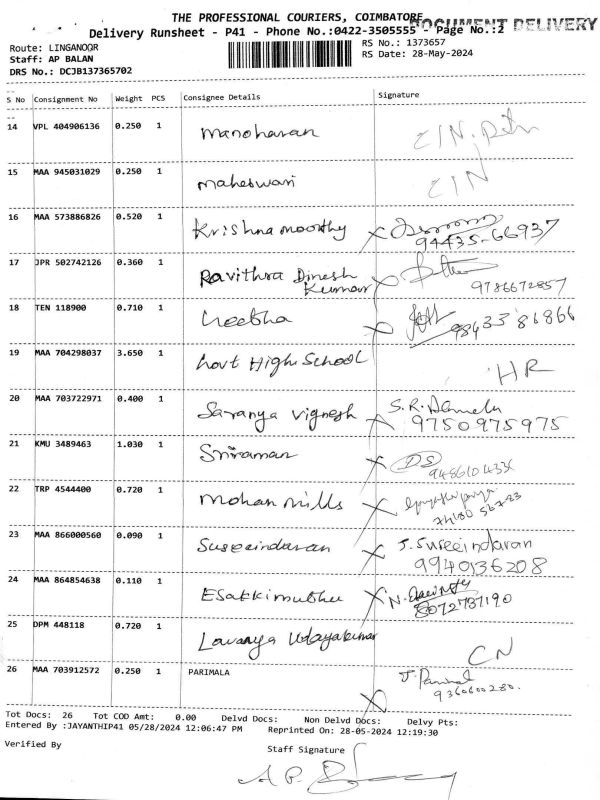 THE PROFESSIONAL COURIERS, COIMBATORE
DOCUMENT DELIVERY
Delivery Runsheet - P41 - Phone No.:0422-3505555 - Page No.:2
Route: LINGANOOR
RS No.: 1373657
Staff: AP BALAN
RS Date: 28-May-2024
DRS No.: DCJB137365702
S No Consignment No Weight PCS Consignee Details Signature
14 VPL 404906136 0.250 1 Manoharan
15 MAA 945031029 0.250 1 Maheswari
16 MAA 573886826 0.520 1 Krishna moorthy X
94435-66937
17 JPR 502742126 0.360 1 Pavithra Dinesh Kumar X
9786672857
18 TEN 118900 0.710 1
19 MAA 704298037 3.650 1 Govt High School HR
20 MAA 703722971 0.400 1 Saranya Vignesh X S.R.
9750975975
21 KMU 3489463 1.030 1 Sriraman X DS
22 TRP 4544400 0.720 1 Mohan mills X
23 MAA 866000560 0.090 1 Suseeindaran X J. Suseeindaran
9940136208
24 MAA 864854638 0.110 1 Esakkimuthu X N.
8072787190
25 DPM 448118 0.720 1 Lavanya Udayakumar CN
26 MAA 703912572 0.250 1 PARIMALA X J.
9360600280.
Tot Docs: 26 Tot COD Amt: 0.00 Delvd Docs: Non Delvd Docs: Delvy Pts:
Entered By :JAYANTHIP41 05/28/2024 12:06:47 PM Reprinted On: 28-05-2024 12:19:30
Verified By Staff Signature